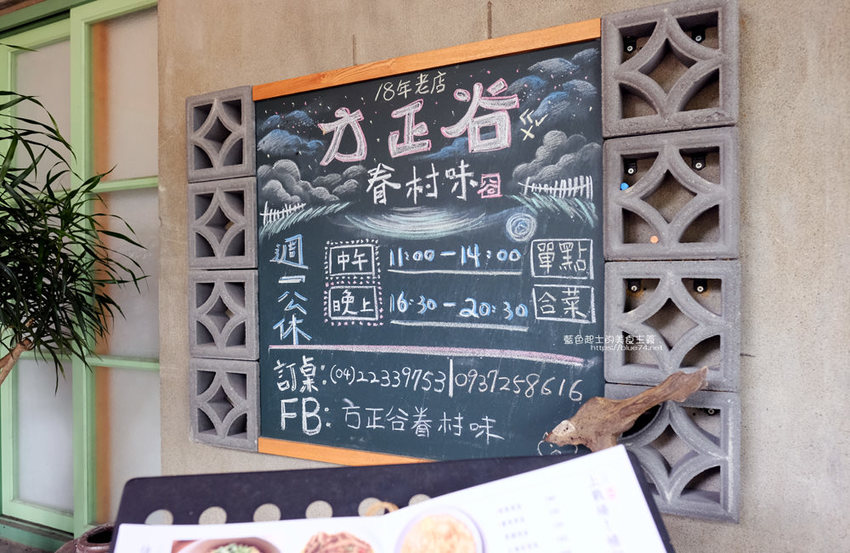 18年老店
方正谷
眷村味 谷
週一公休
中午 11:00-14:00 單點
晚上 16:30-20:30 合菜
訂桌:(04)22339753|0937258616
FB:方正谷眷村味
藍色起士的美食主義
https://blue74.net